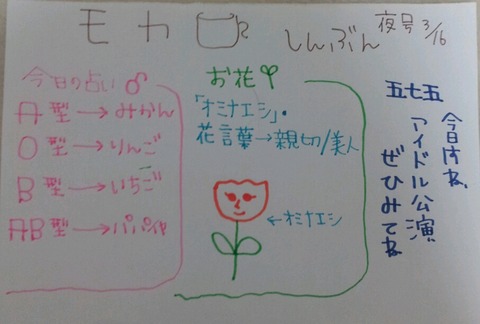 モカ しんぶん 夜号 3/16
今日の占い♂
A型→みかん
O型→りんご
B型→いちご
AB型→パパイヤ
お花
「オミナエシ」・
花言葉→親切/美人
←オミナエシ
五七五
今日はね、
アイドル公演
ぜひみてね